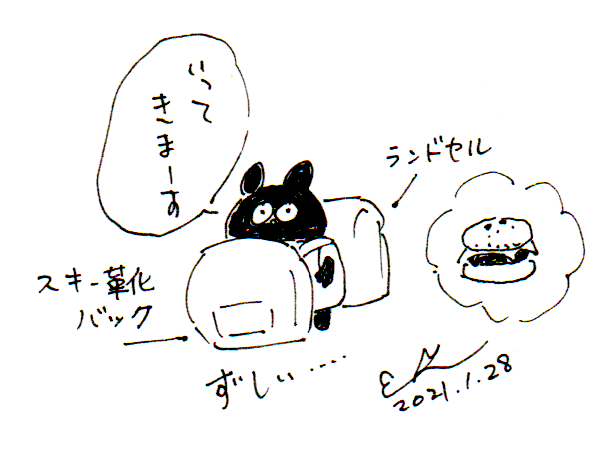 いって
きまーす
ランドセル
スキー革化
バック
ずしぃ‥‥
2021.1.28